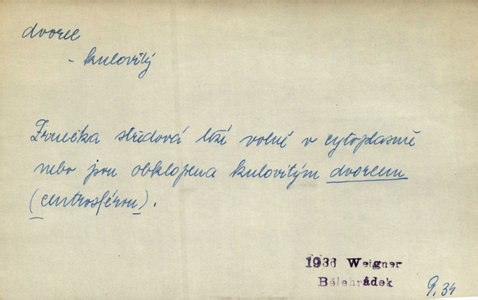 dvorec
- kulovitý
Zrnéčka středová leží volně v cytoplasmě
nebo jsou obklopena kulovitým dvorcem
(centrosférou).
1936 Weigner
Bělehrádek
9, 34